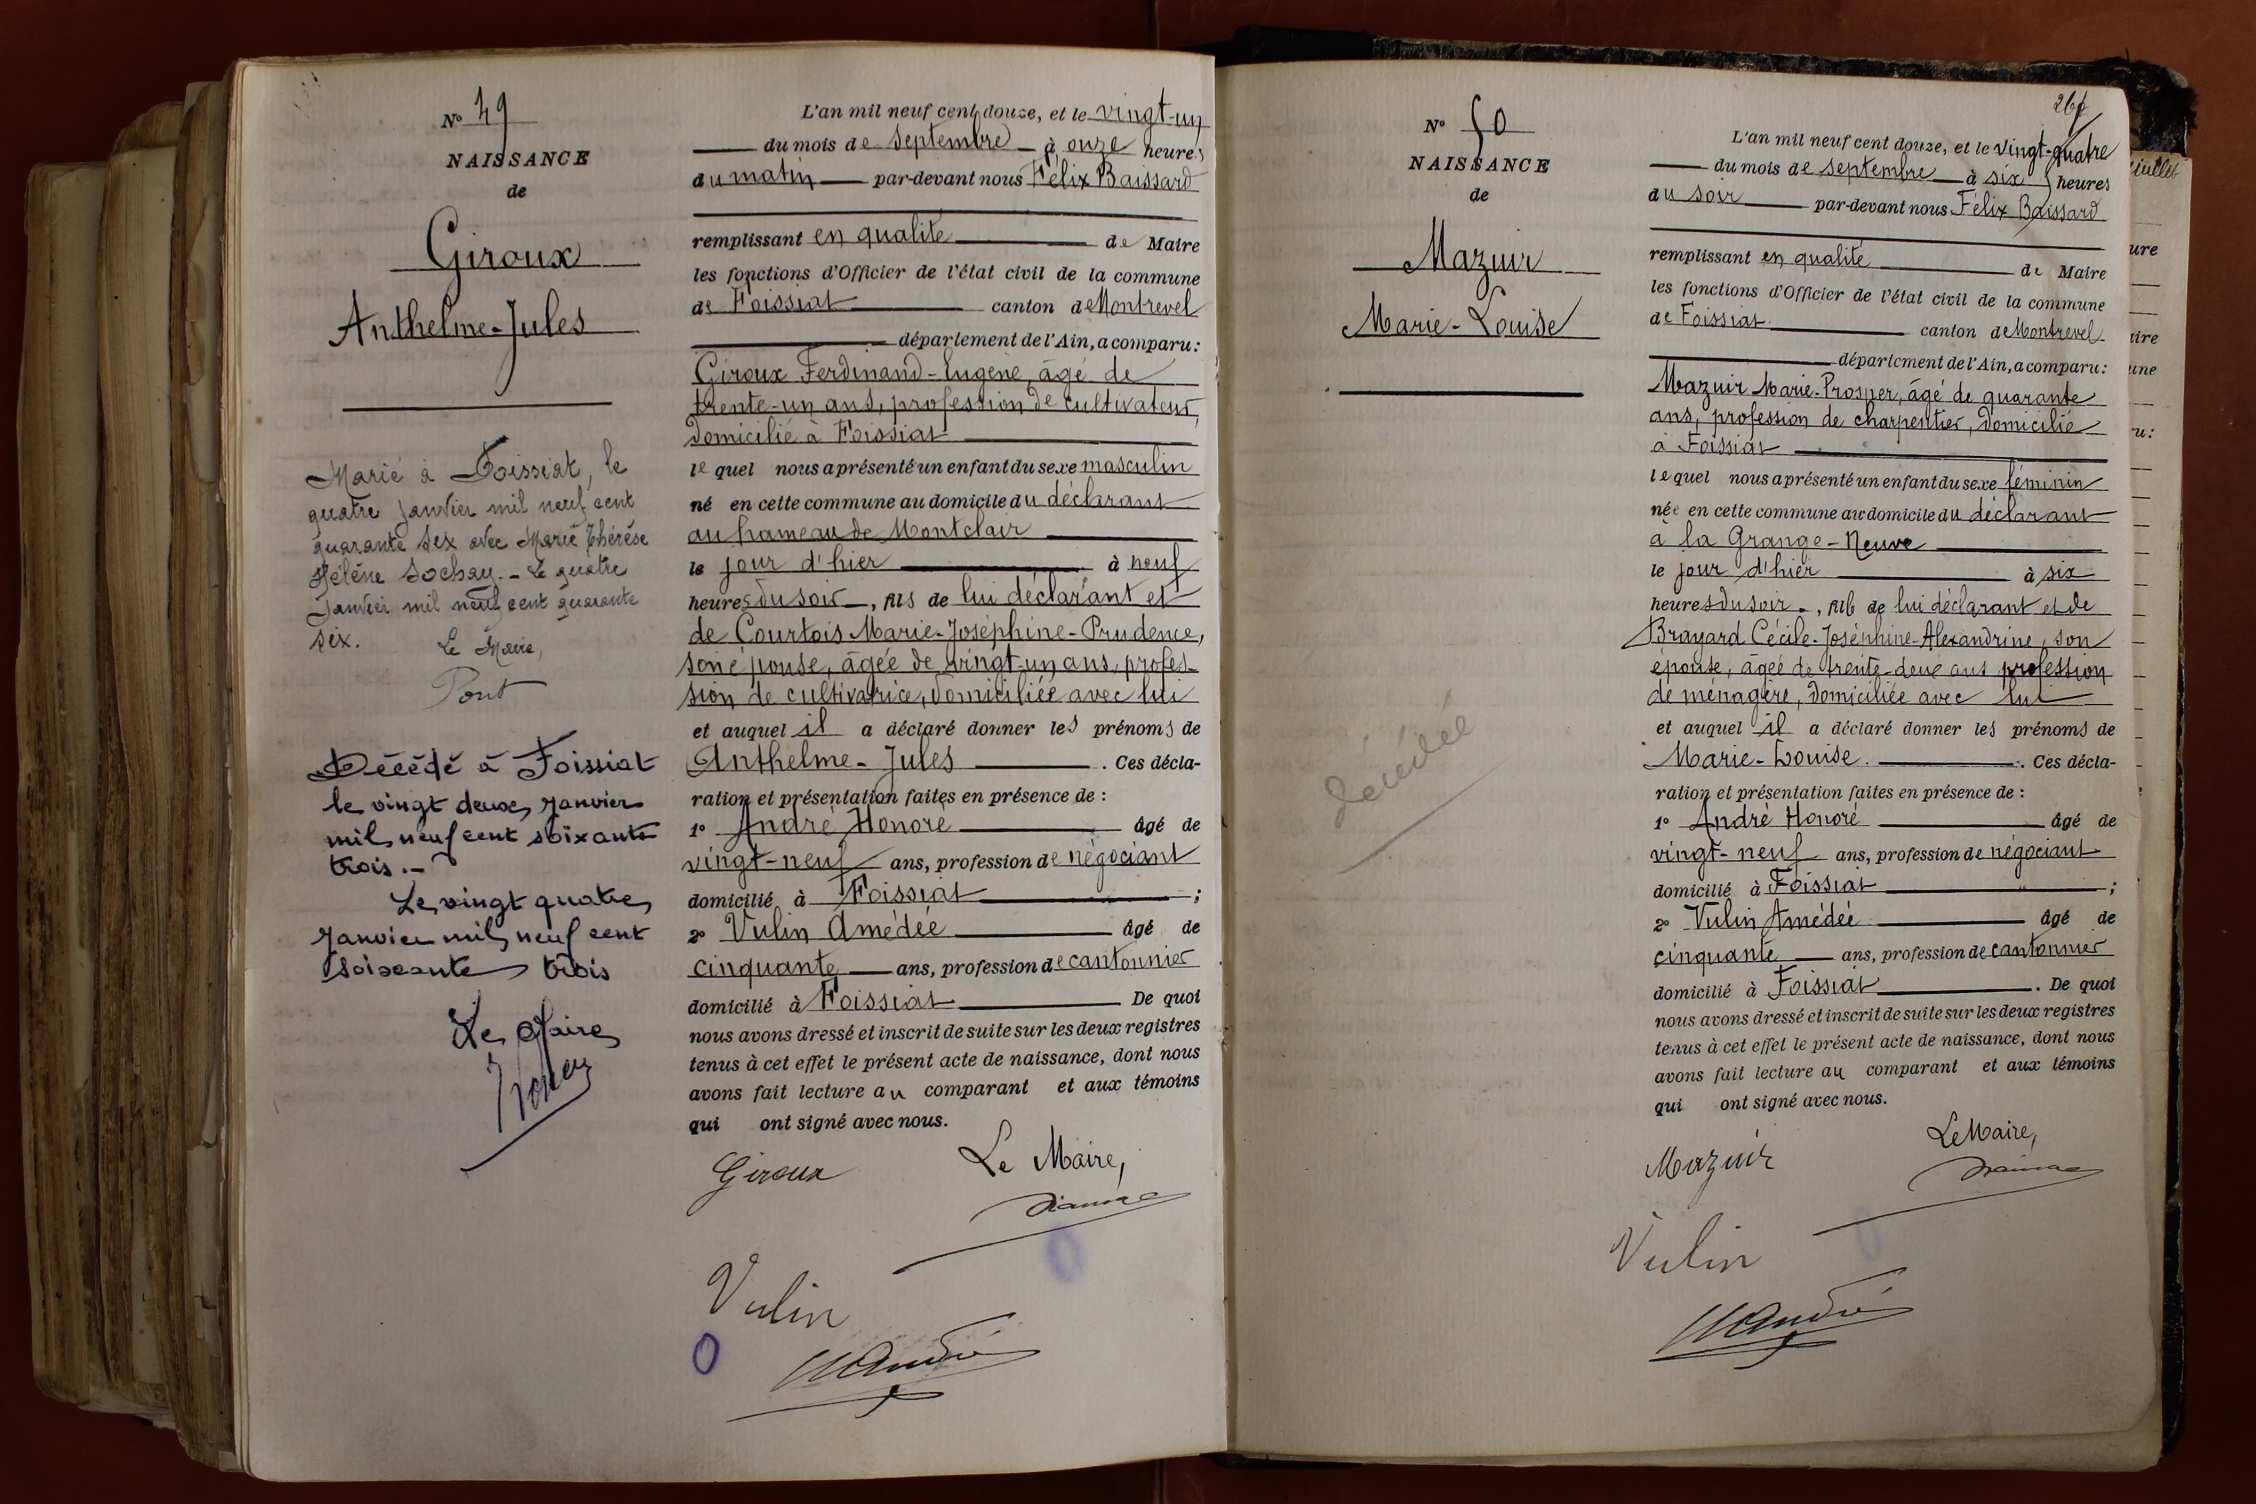 N° 49
NAISSANCE
de
Giroux
Anthelme-Jules
Marié à Foissiat, le
quatre Janvier mil neuf cent
quarante six avec Marie Thérèse
Hélène Sochay. - Le quatre
Janvier mil neuf cent quarante
six.
Le Maire,
Pont
Décédé à Foissiat
le vingt deux Janvier
mil neuf cent soixante
trois.-
Le vingt quatre
Janvier mil neuf cent
soixante trois
Le Maire
L'an mil neuf cent douze, et le vingt-un
du mois de septembre à onze heures
du matin par-devant nous Félix Baissard
remplissant en qualité de Maire
les fonctions d'Officier de l'état civil de la commune
de Foissiat canton de Montrevel
département de l'Ain, a comparu:
Giroux Ferdinand-Eugène, âgé de
trente-un ans, profession de cultivateur,
domicilié à Foissiat
lequel nous a présenté un enfant du sexe masculin
né en cette commune au domicile du déclarant
au hameau de Montclair
le jour d'hier à neuf
heures du soir, fils de lui déclarant et
de Courtois Marie-Joséphine-Prudence,
son épouse, âgée de vingt-un ans, profes-
sion de cultivatrice, domiciliée avec lui
et auquel il a déclaré donner les prénoms de
Anthelme-Jules. Ces décla-
ration et présentation faites en présence de :
1° André Honoré âgé de
vingt-neuf ans, profession de négociant
domicilié à Foissiat ;
2° Vulin Amédée âgé de
cinquante ans, profession de cantonnier
domicilié à Foissiat De quoi
nous avons dressé et inscrit de suite sur les deux registres
tenus à cet effet le présent acte de naissance, dont nous
avons fait lecture au comparant et aux témoins
qui ont signé avec nous.
Giroux Le Maire,
Vulin
HAndré
N° 50
NAISSANCE
de
Mazuir
Marie-Louise
décédée
L'an mil neuf cent douze, et le vingt-quatre
du mois de septembre à six heures
du soir par-devant nous Félix Baissard
remplissant en qualité de Maire
les fonctions d'Officier de l'état civil de la commune
de Foissiat canton de Montrevel
département de l'Ain, a comparu:
Mazuir Marie-Prosper, âgé de quarante
ans, profession de charpentier, domicilié
à Foissiat
lequel nous a présenté un enfant du sexe féminin
née en cette commune au domicile du déclarant
à la Grange-Neuve
le jour d'hier à six
heures du soir, fille de lui déclarant et de
Brayard Cécile-Joséphine-Alexandrine, son
épouse, âgée de trente-deux ans profession
de ménagère, domiciliée avec lui
et auquel il a déclaré donner les prénoms de
Marie-Louise. Ces décla-
ration et présentation faites en présence de :
1° André Honoré âgé de
vingt-neuf ans, profession de négociant
domicilié à Foissiat ;
2° Vulin Amédée âgé de
cinquante ans, profession de cantonnier
domicilié à Foissiat. De quoi
nous avons dressé et inscrit de suite sur les deux registres
tenus à cet effet le présent acte de naissance, dont nous
avons fait lecture au comparant et aux témoins
qui ont signé avec nous.
Mazuir Le Maire,
Vulin
HAndré
juillet